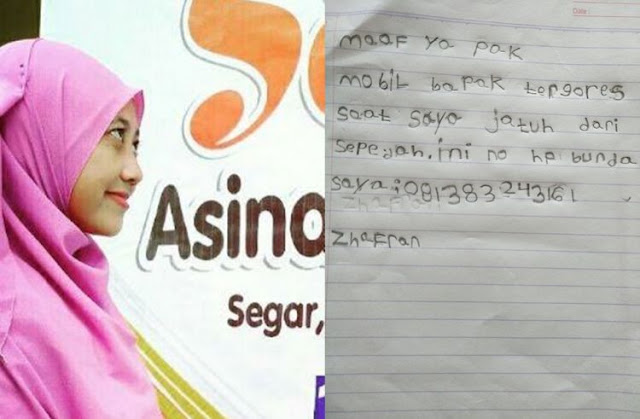 Asino
Segar,
Date :
maaf ya pak
mobil bapak tergores
saat saya jatuh dari
sepedah. ini no hp bunda
saya : 081383243161
Zhafran
Zhafran